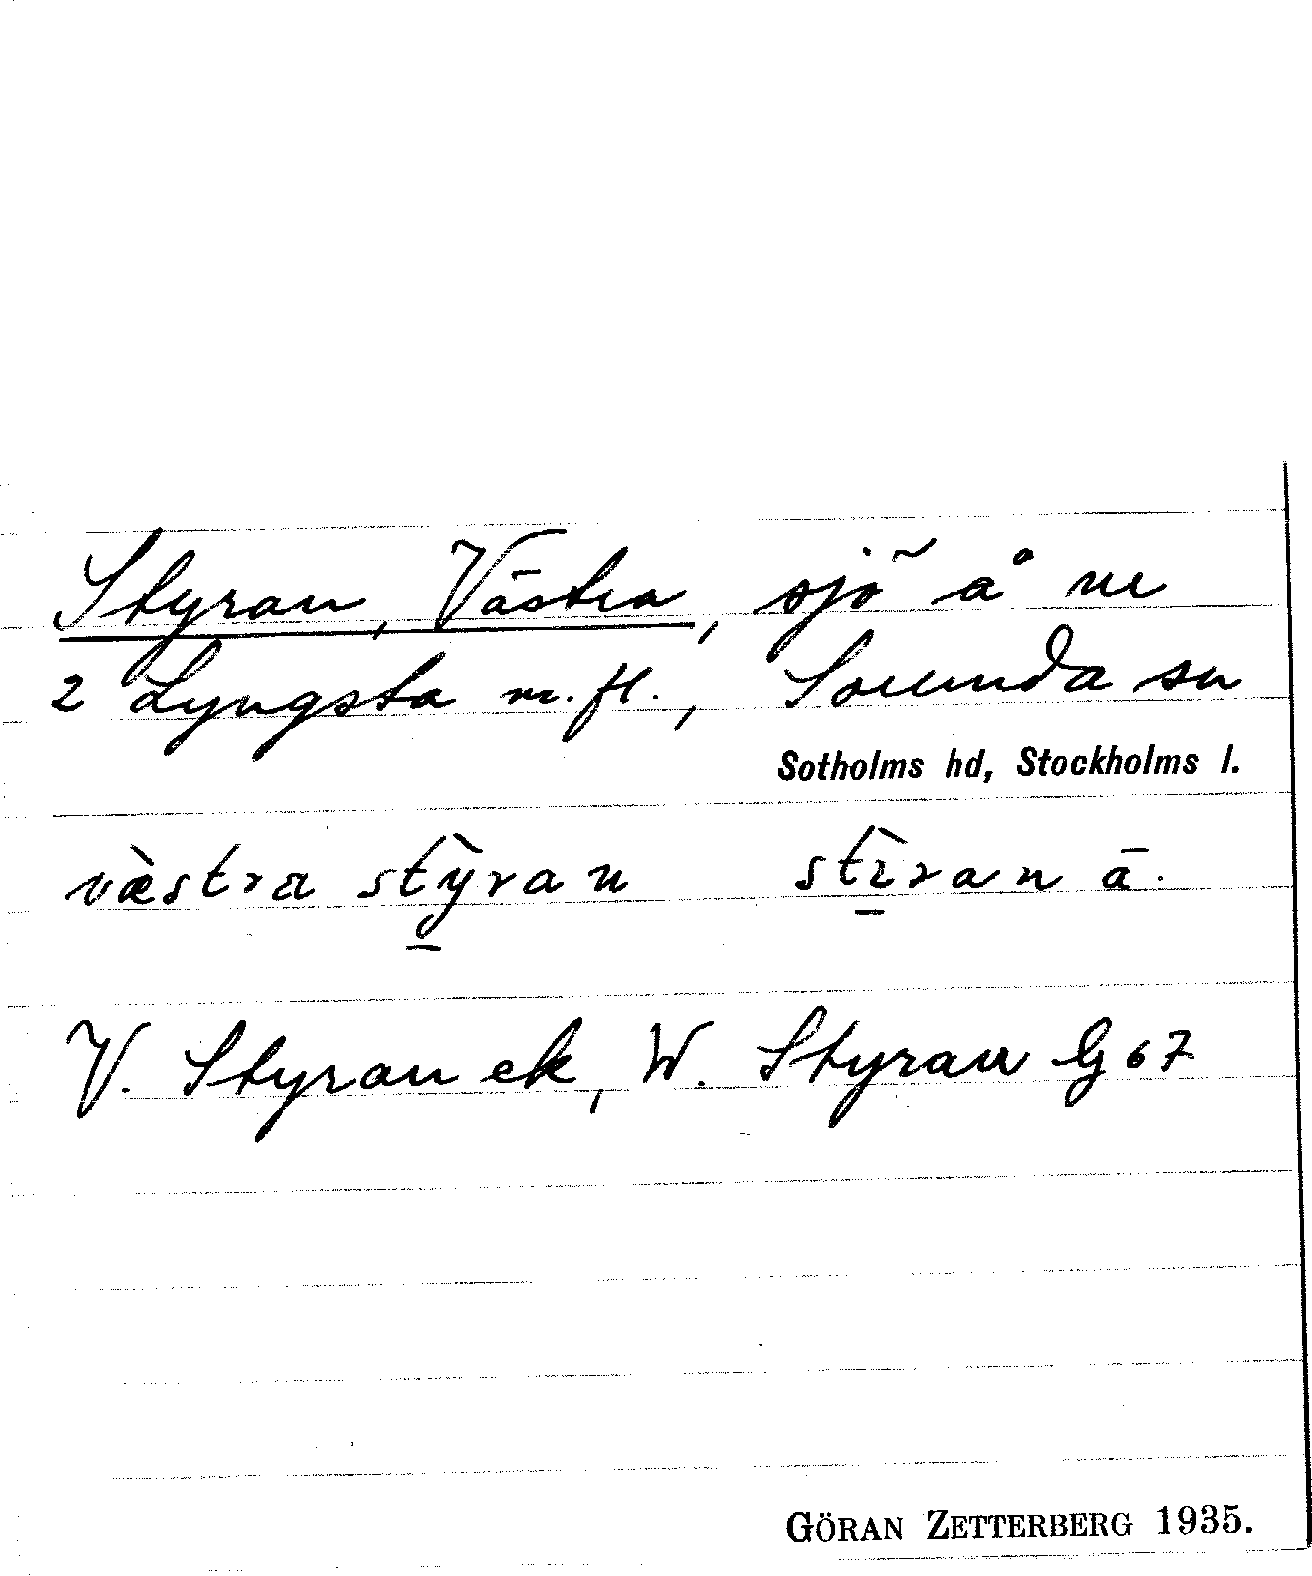 Styran, Västra, sjö å nr
2 Lyngsta m. fl., Sorunda sn
Sotholms hd, Stockholms l.
væ̀stra stỳran stìran ā.
V. Styran ek, W. Styran G 67
GÖRAN ZETTERBERG 1935.